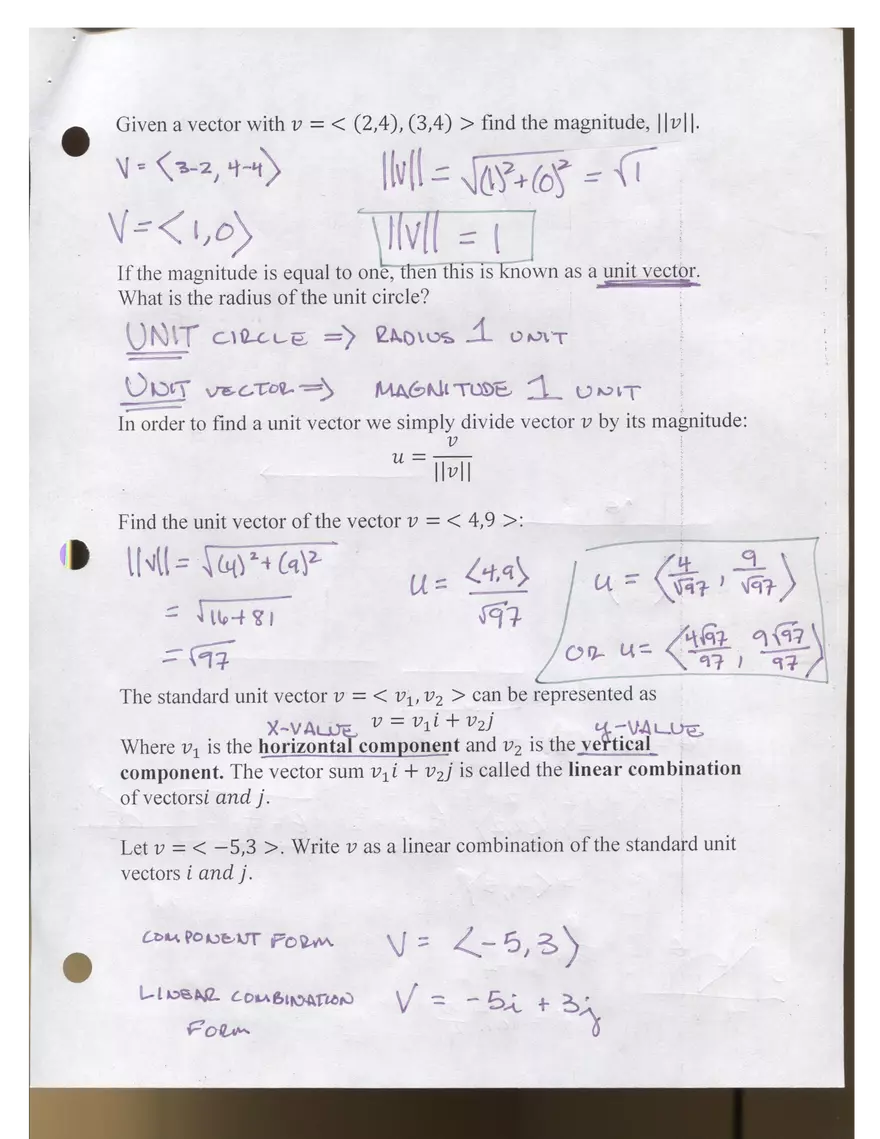 Given a vector with v = < (2,4), (3,4) > find the magnitude, ||v||.
V = ⟨3-2, 4-4⟩ ||v|| = √(1)²+(0)² = √1
V = ⟨1,0⟩ ||v|| = 1
If the magnitude is equal to one, then this is known as a unit vector.
What is the radius of the unit circle?
UNIT CIRCLE => RADIUS 1 UNIT
UNIT VECTOR => MAGNITUDE 1 UNIT
In order to find a unit vector we simply divide vector v by its magnitude:
u = v/||v||
Find the unit vector of the vector v = < 4,9 >:
||v|| = √(4)²+(9)² u = ⟨4,9⟩/√97 u = ⟨4/√97, 9/√97⟩
= √16+81
= √97 OR u = ⟨4√97/97, 9√97/97⟩
The standard unit vector v = < v₁, v₂ > can be represented as
v = v₁i + v₂j
X-VALUE y-VALUE
Where v₁ is the horizontal component and v₂ is the vertical
component. The vector sum v₁i + v₂j is called the linear combination
of vectorsi and j.
Let v = < −5,3 >. Write v as a linear combination of the standard unit
vectors i and j.
COMPONENT FORM V = ⟨-5,3⟩
LINEAR COMBINATION V = -5i + 3j
FORM